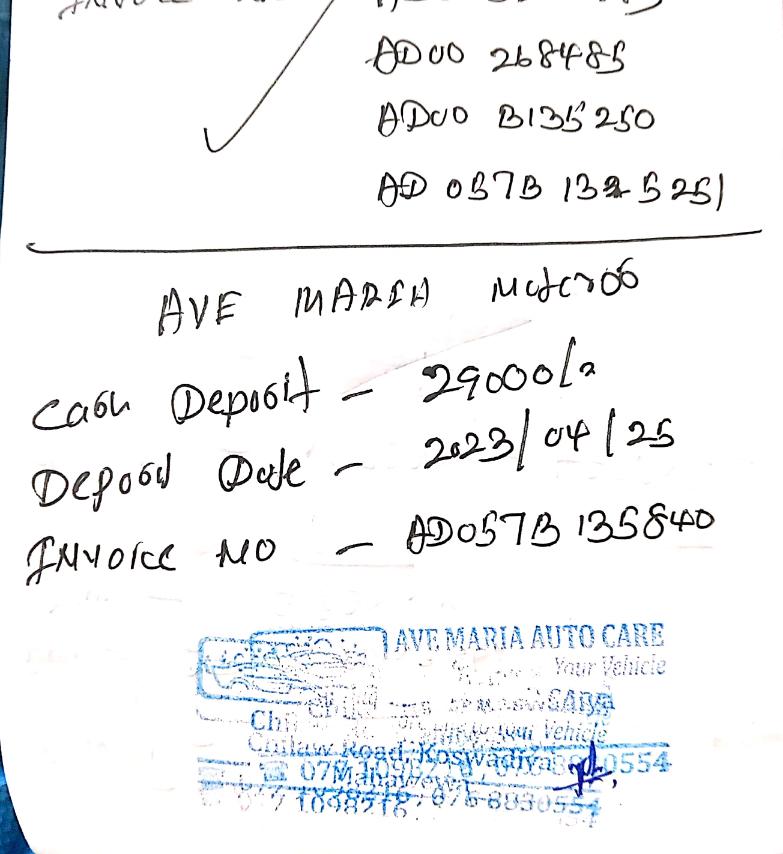 AD00 268485
AD00 B135250
AD 057B 135251
AVE MARIA Motoros
Cash Deposit - 29000/=
Deposit Date - 2023/04/25
INVOICE NO - AD057B 135840
AVE MARIA AUTO CARE
Your Vehicle
Your Vehicle
Chilaw Road, Koswadiya
0554
076-8830554